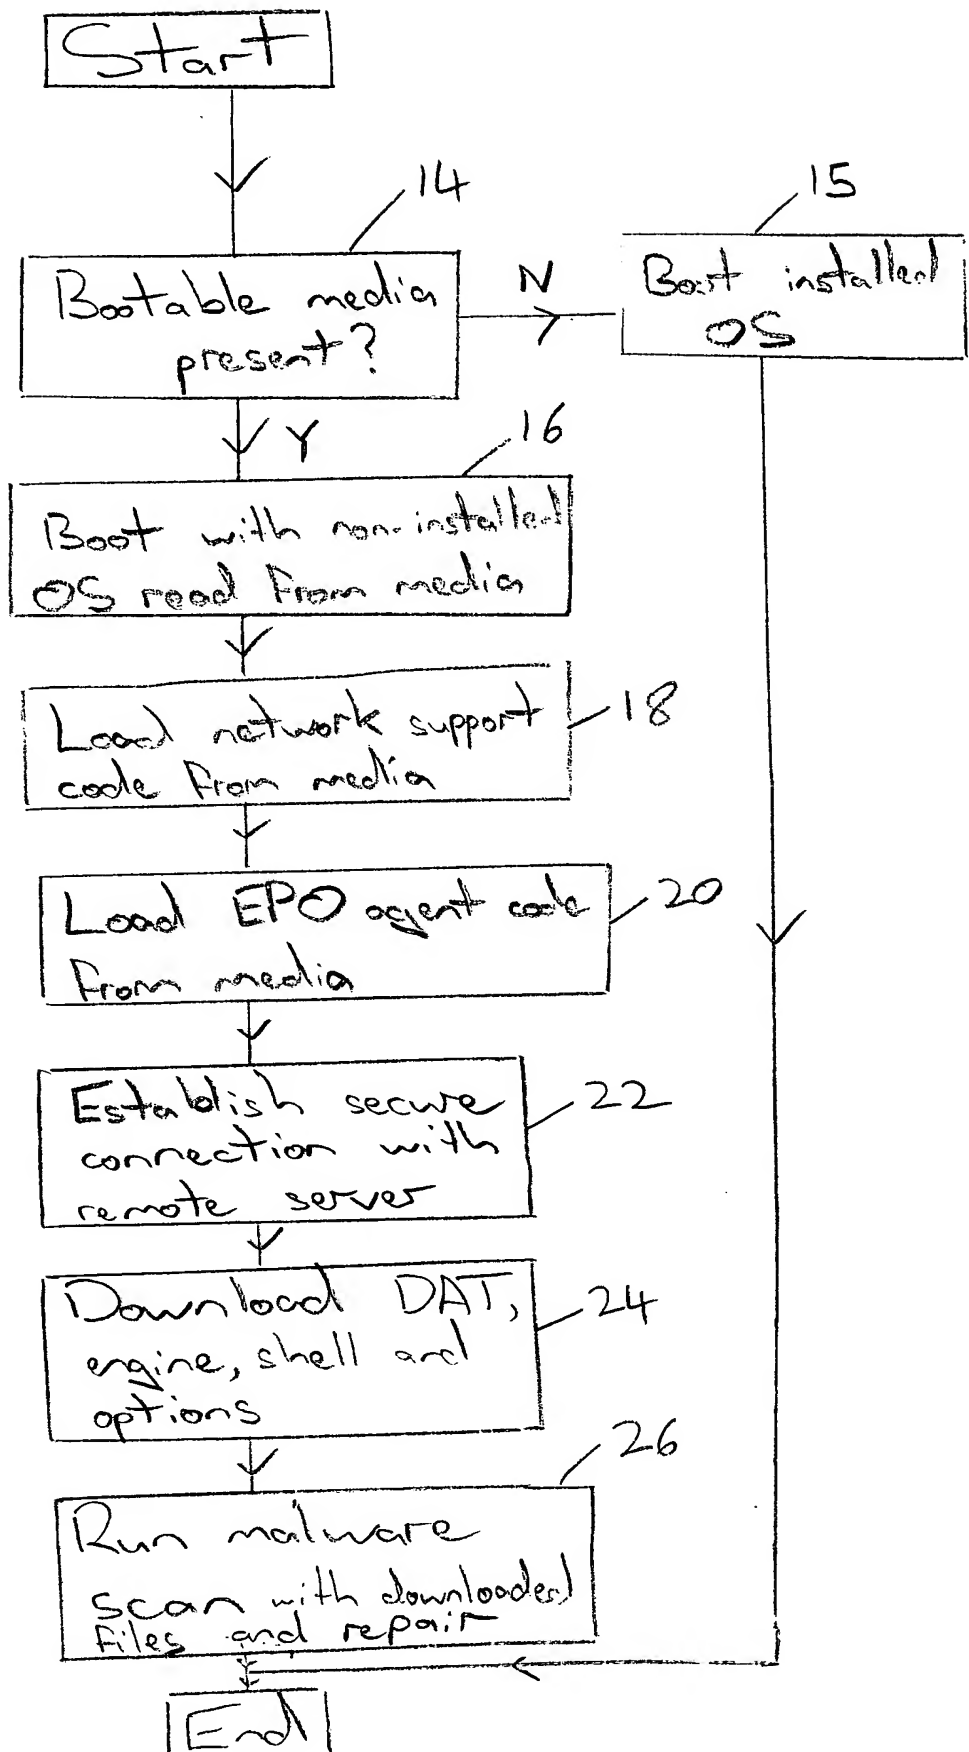 Start
14
15
Bootable media
present?
N
Boot installed
OS
Y
16
Boot with non-installed
OS read from media
Load network support
code from media
18
Load EPO agent code
from media
20
Establish secure
connection with
remote server
22
Download DAT,
engine, shell and
options
24
26
Run malware
scan with downloaded
files and repair
End